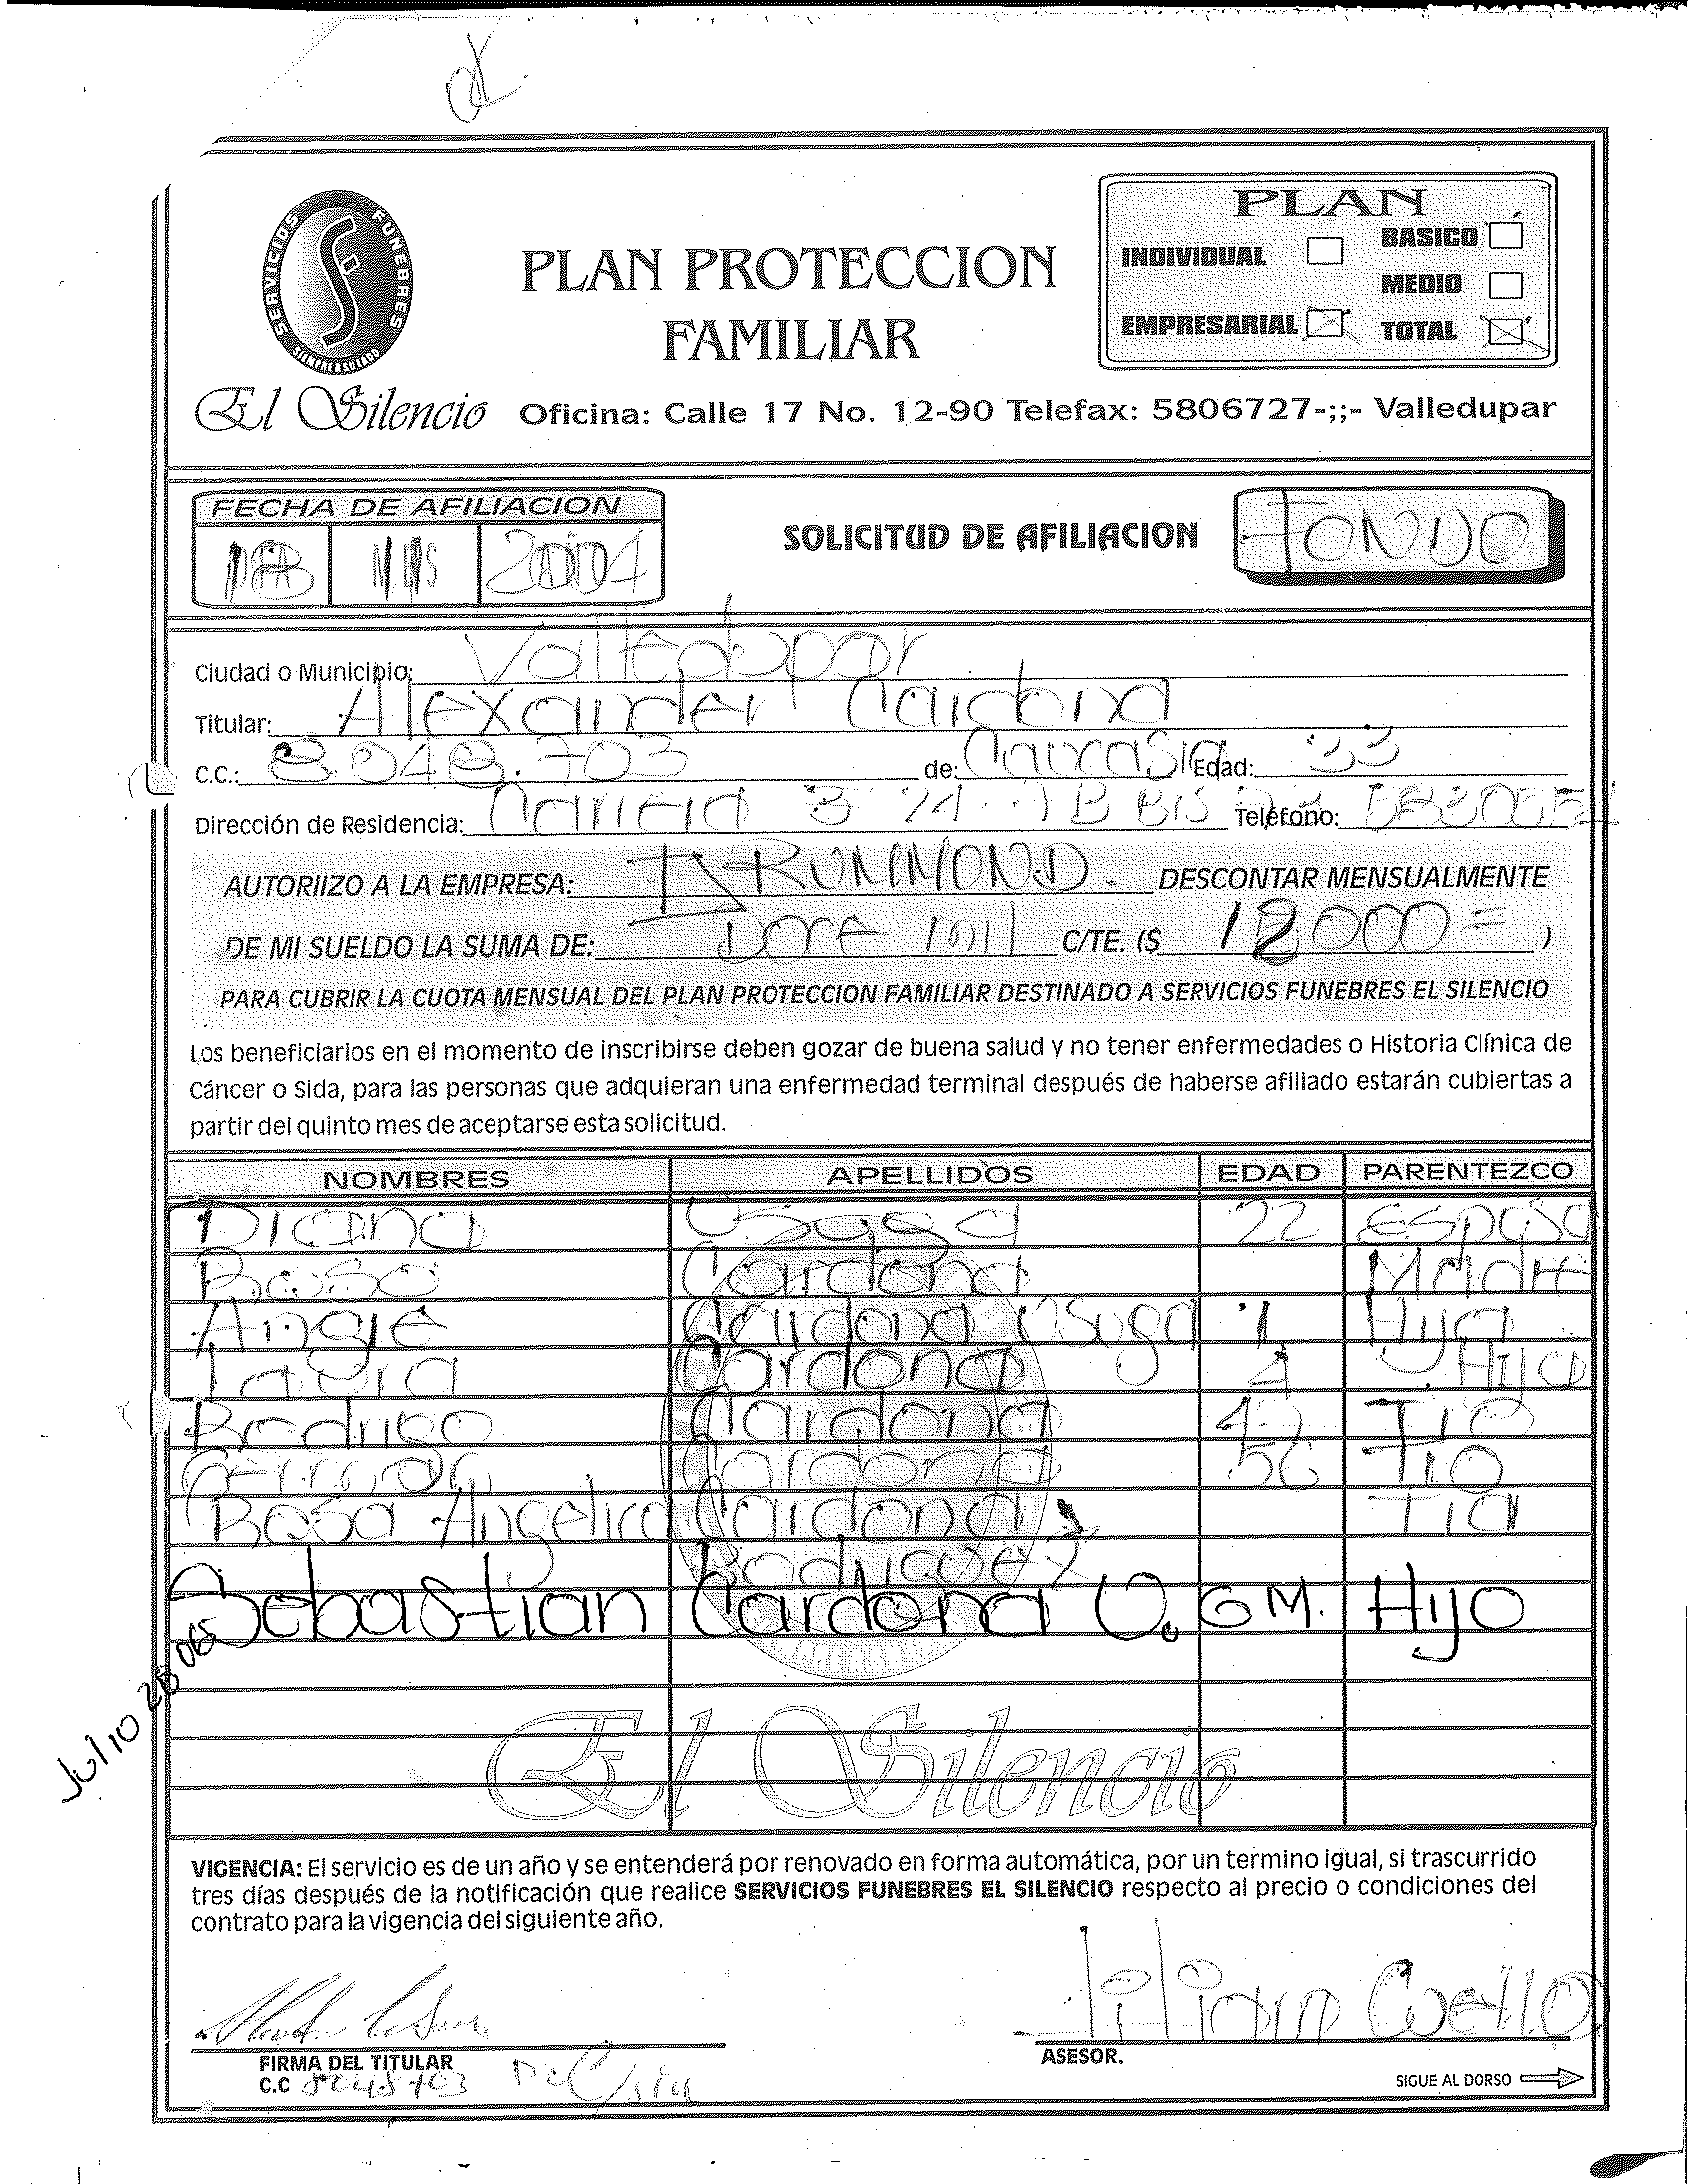 PLAN
INDIVIDUAL BASICO
MEDIO
EMPRESARIAL TOTAL
SERVICIOS FUNEBRES
SIEMPRE A SU LADO
PLAN PROTECCION
FAMILIAR
El Silencio Oficina: Calle 17 No. 12-90 Telefax: 5806727-;;- Valledupar
FECHA DE AFILIACION
2004
SOLICITUD DE AFILIACION FONDO
Ciudad o Municipio: Valledupar
Titular: Alexander Cardona
C.C.: 8.048.703 de: Caucasia Edad: 33
Dirección de Residencia: Carrera 3 Teléfono:
AUTORIIZO A LA EMPRESA: DRUMMOND. DESCONTAR MENSUALMENTE
DE MI SUELDO LA SUMA DE: Doce mil C/TE. ($ 12000= )
PARA CUBRIR LA CUOTA MENSUAL DEL PLAN PROTECCION FAMILIAR DESTINADO A SERVICIOS FUNEBRES EL SILENCIO
Los beneficiarios en el momento de inscribirse deben gozar de buena salud y no tener enfermedades o Historia Clínica de
Cáncer o Sida, para las personas que adquieran una enfermedad terminal después de haberse afiliado estarán cubiertas a
partir del quinto mes de aceptarse esta solicitud.
NOMBRES APELLIDOS EDAD PARENTEZCO
Diana Usuga 22 Esposa
Rosa Cardona Madre
Angie Cardona Usuga 1 Hija
Laura Cardona 4 Hija
Rodrigo Cardona Tio
Cardona 56 Tio
Rosa Angelica Cardona Tia
Rodriguez
Sebastian Cardona U. 6 M. Hijo
Julio 28
El Silencio
VIGENCIA: El servicio es de un año y se entenderá por renovado en forma automática, por un termino igual, si trascurrido
tres días después de la notificación que realice SERVICIOS FUNEBRES EL SILENCIO respecto al precio o condiciones del
contrato para la vigencia del siguiente año.
Cuello
FIRMA DEL TITULAR
C.C 8048703
ASESOR.
SIGUE AL DORSO